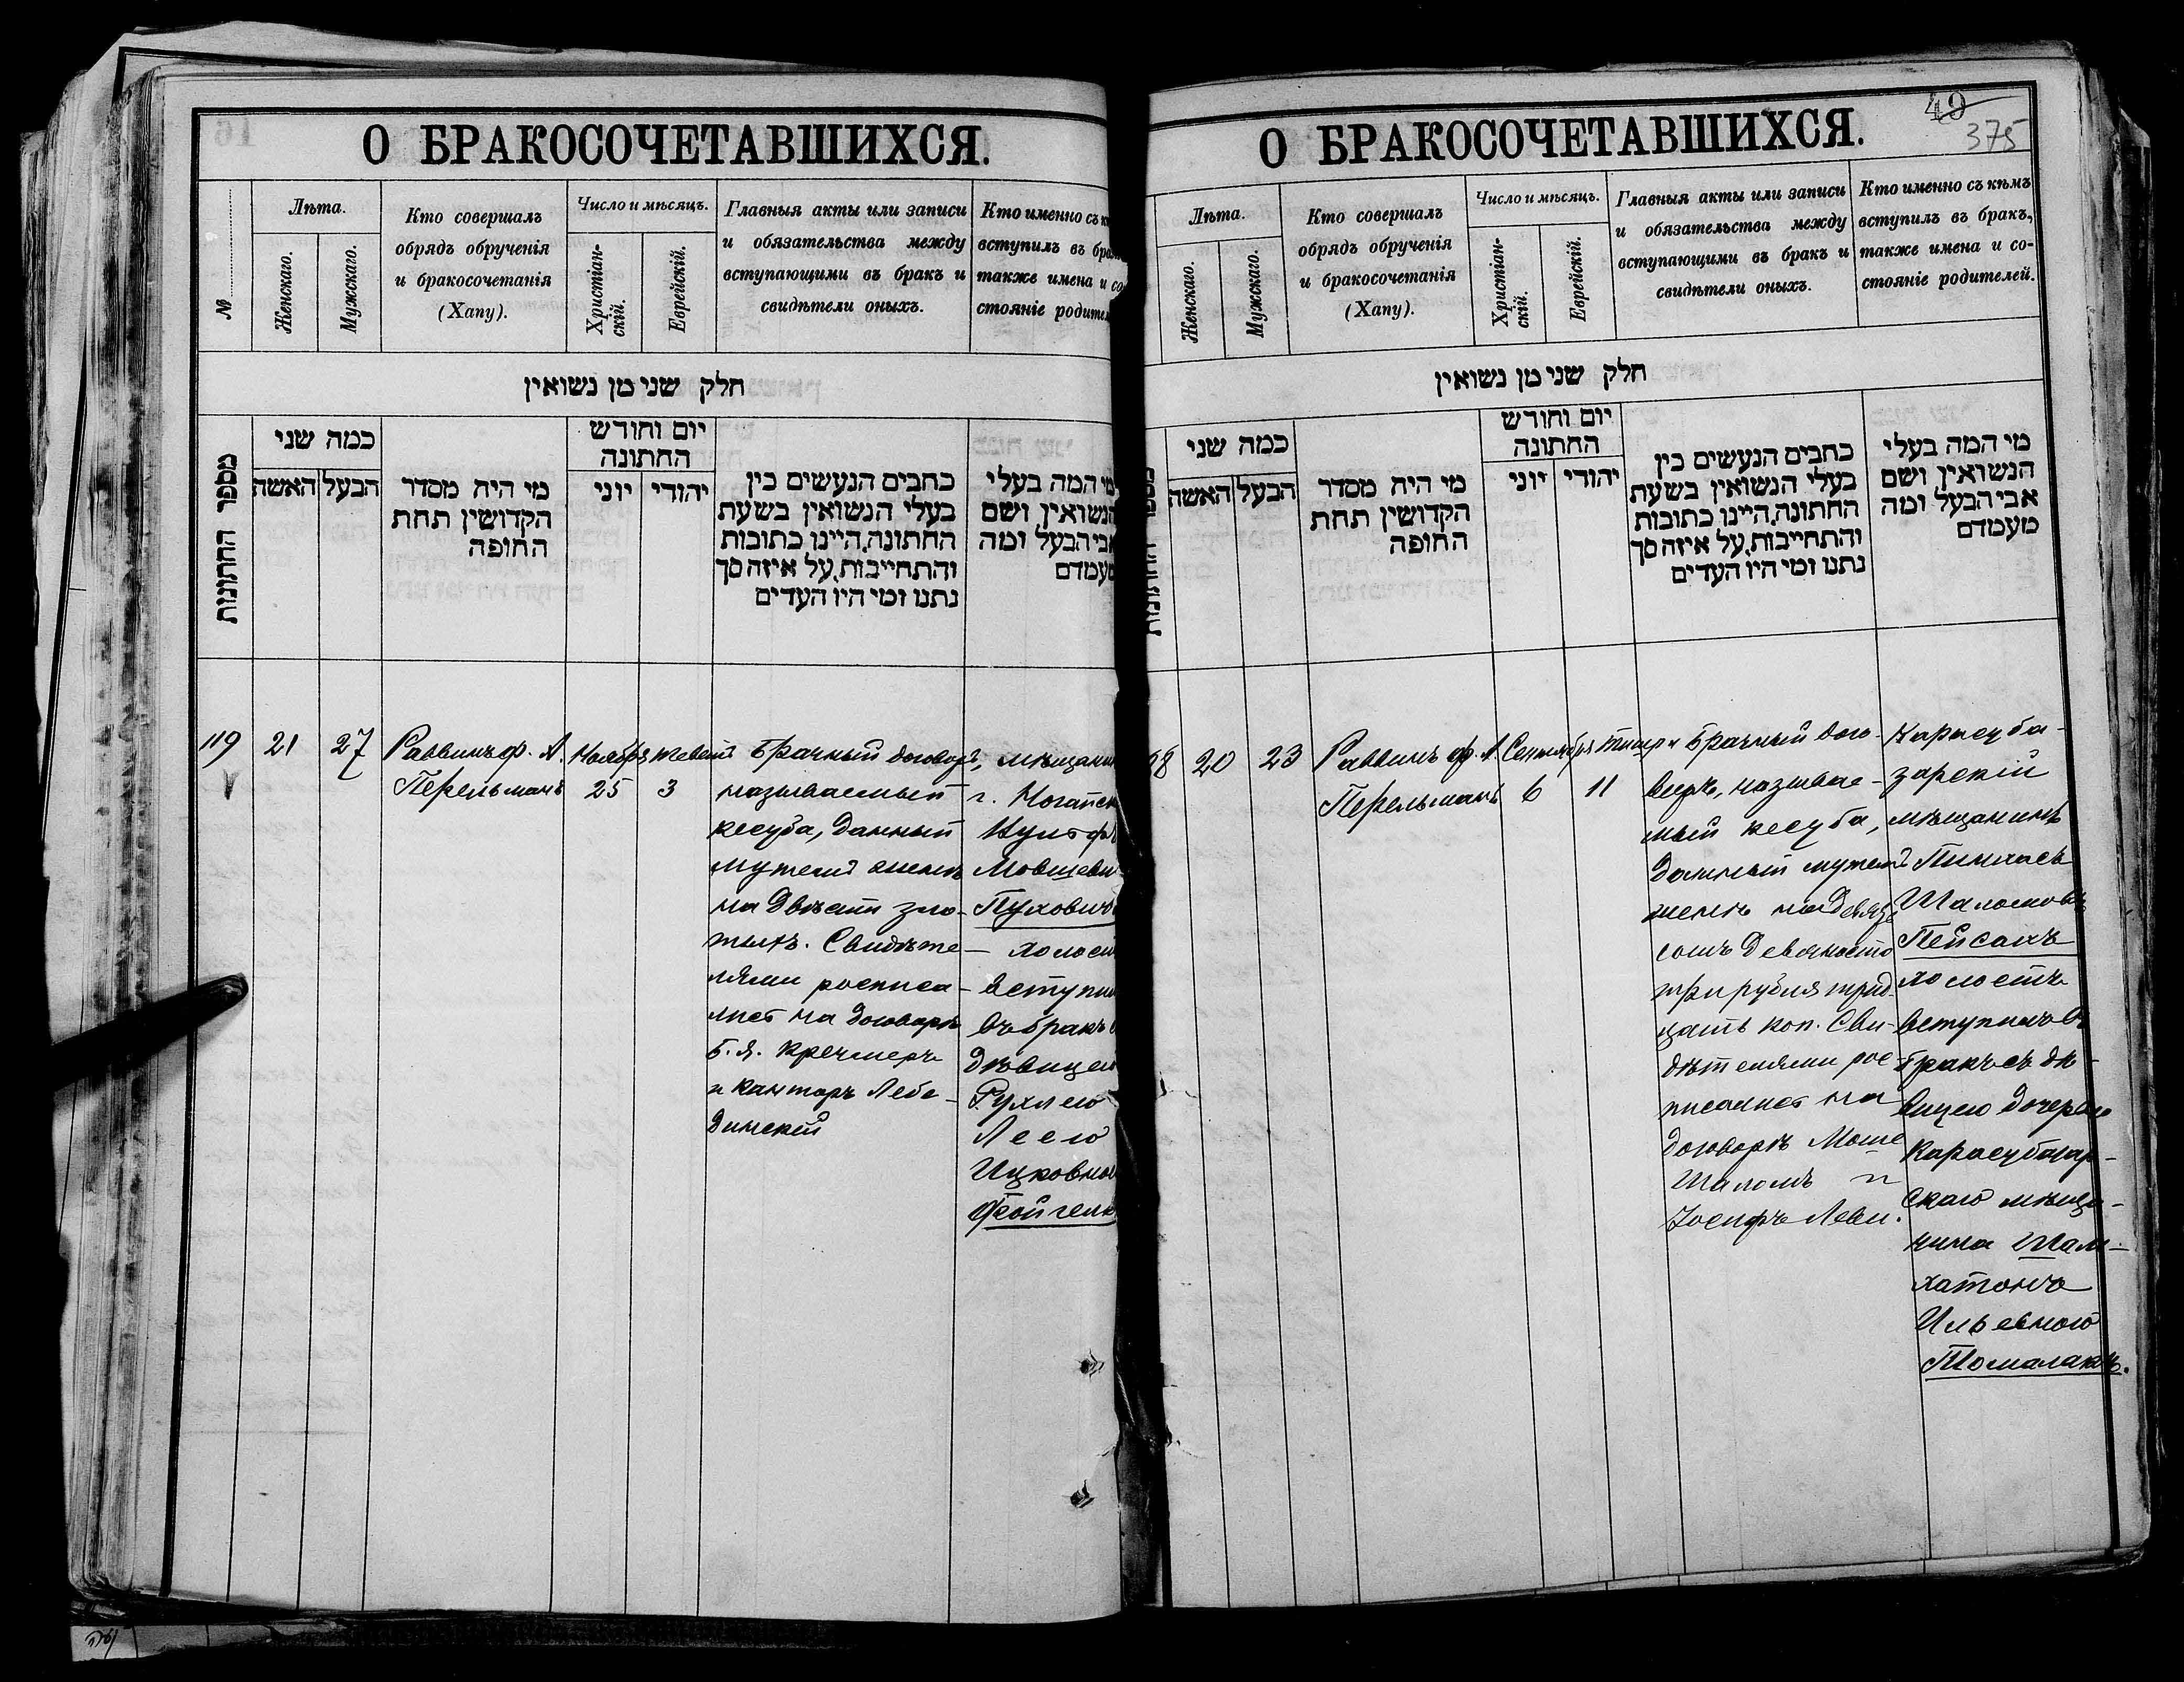 О БРАКОСОЧЕТАВШИХСЯ.
№
Лѣта.
Женскаго.
Мужскаго.
Кто совершалъ
обрядъ обрученія
и бракосочетанія
(Хапу).
Число и мѣсяцъ.
Христіан-
скій.
Еврейскій.
Главныя акты или записи
и обязательства между
вступающими въ бракъ и
свидѣтели оныхъ.
Кто именно съ
вступилъ въ
также имена и со
стояніе
חלק שני מן נשואין
מספר החתונות
כמה שני
האשה
הבעל
מי היה מסדר
הקדושין תחת
החופה
יום וחודש
החתונה
יוני
יהודי
כתבים הנעשים בין
בעלי הנשואין בשעת
החתונה, היינו כתובות
והתחייבות, על איזה סך
נתנו ומי היו העדים
מי המה בעלי
הנשואין ושם
אבי הבעל ומה
מעמדם
119
21
27
Раввинъ ф. А.
Перельманъ
Ноября
25
тевет
3
Брачный договоръ,
называемый
кесуба, данный
мужемъ женѣ
на двѣсти зло-
тыхъ. Свидѣте-
лями росписа-
лись на договорѣ
Б. Я. Кречмеръ
и канторъ Лебе-
динскій
г. Ногайск
Мовшеви
Пухович
холост
вступил
въ бракъ
дѣвицею
Рухлею
Леею
Ицковною
О БРАКОСОЧЕТАВШИХСЯ.
40
375
Лѣта.
Женскаго.
Мужскаго.
Кто совершалъ
обрядъ обрученія
и бракосочетанія
(Хапу).
Число и мѣсяцъ.
Христіан-
скій.
Еврейскій.
Главныя акты или записи
и обязательства между
вступающими въ бракъ и
свидѣтели оныхъ.
Кто именно съ кѣмъ
вступилъ въ бракъ,
также имена и со-
стояніе родителей.
חלק שני מן נשואין
כמה שני
האשה
הבעל
מי היה מסדר
הקדושין תחת
החופה
יום וחודש
החתונה
יוני
יהודי
כתבים הנעשים בין
בעלי הנשואין בשעת
החתונה, היינו כתובות
והתחייבות, על איזה סך
נתנו ומי היו העדים
מי המה בעלי
הנשואין ושם
אבי הבעל ומה
מעמדם
8
20
23
Раввинъ ф. А.
Перельманъ
Сентября
6
Тишри
11
Брачный дого-
воръ, называе-
мый кесуба,
данный мужемъ
женѣ на девять
сотъ девяносто
три рубля трид-
цать коп. Сви-
дѣтелями рос-
писались на
договорѣ Моше
Шаломъ и
Іосифъ Леви.
Карасуба-
зарскій
мѣщанинъ
Пинхасъ
Шаломовъ
Пейсахъ
холостъ
вступилъ въ
бракъ съ дѣ-
вицею дочерью
Карасубазар-
скаго мѣща-
нина
Ильевною